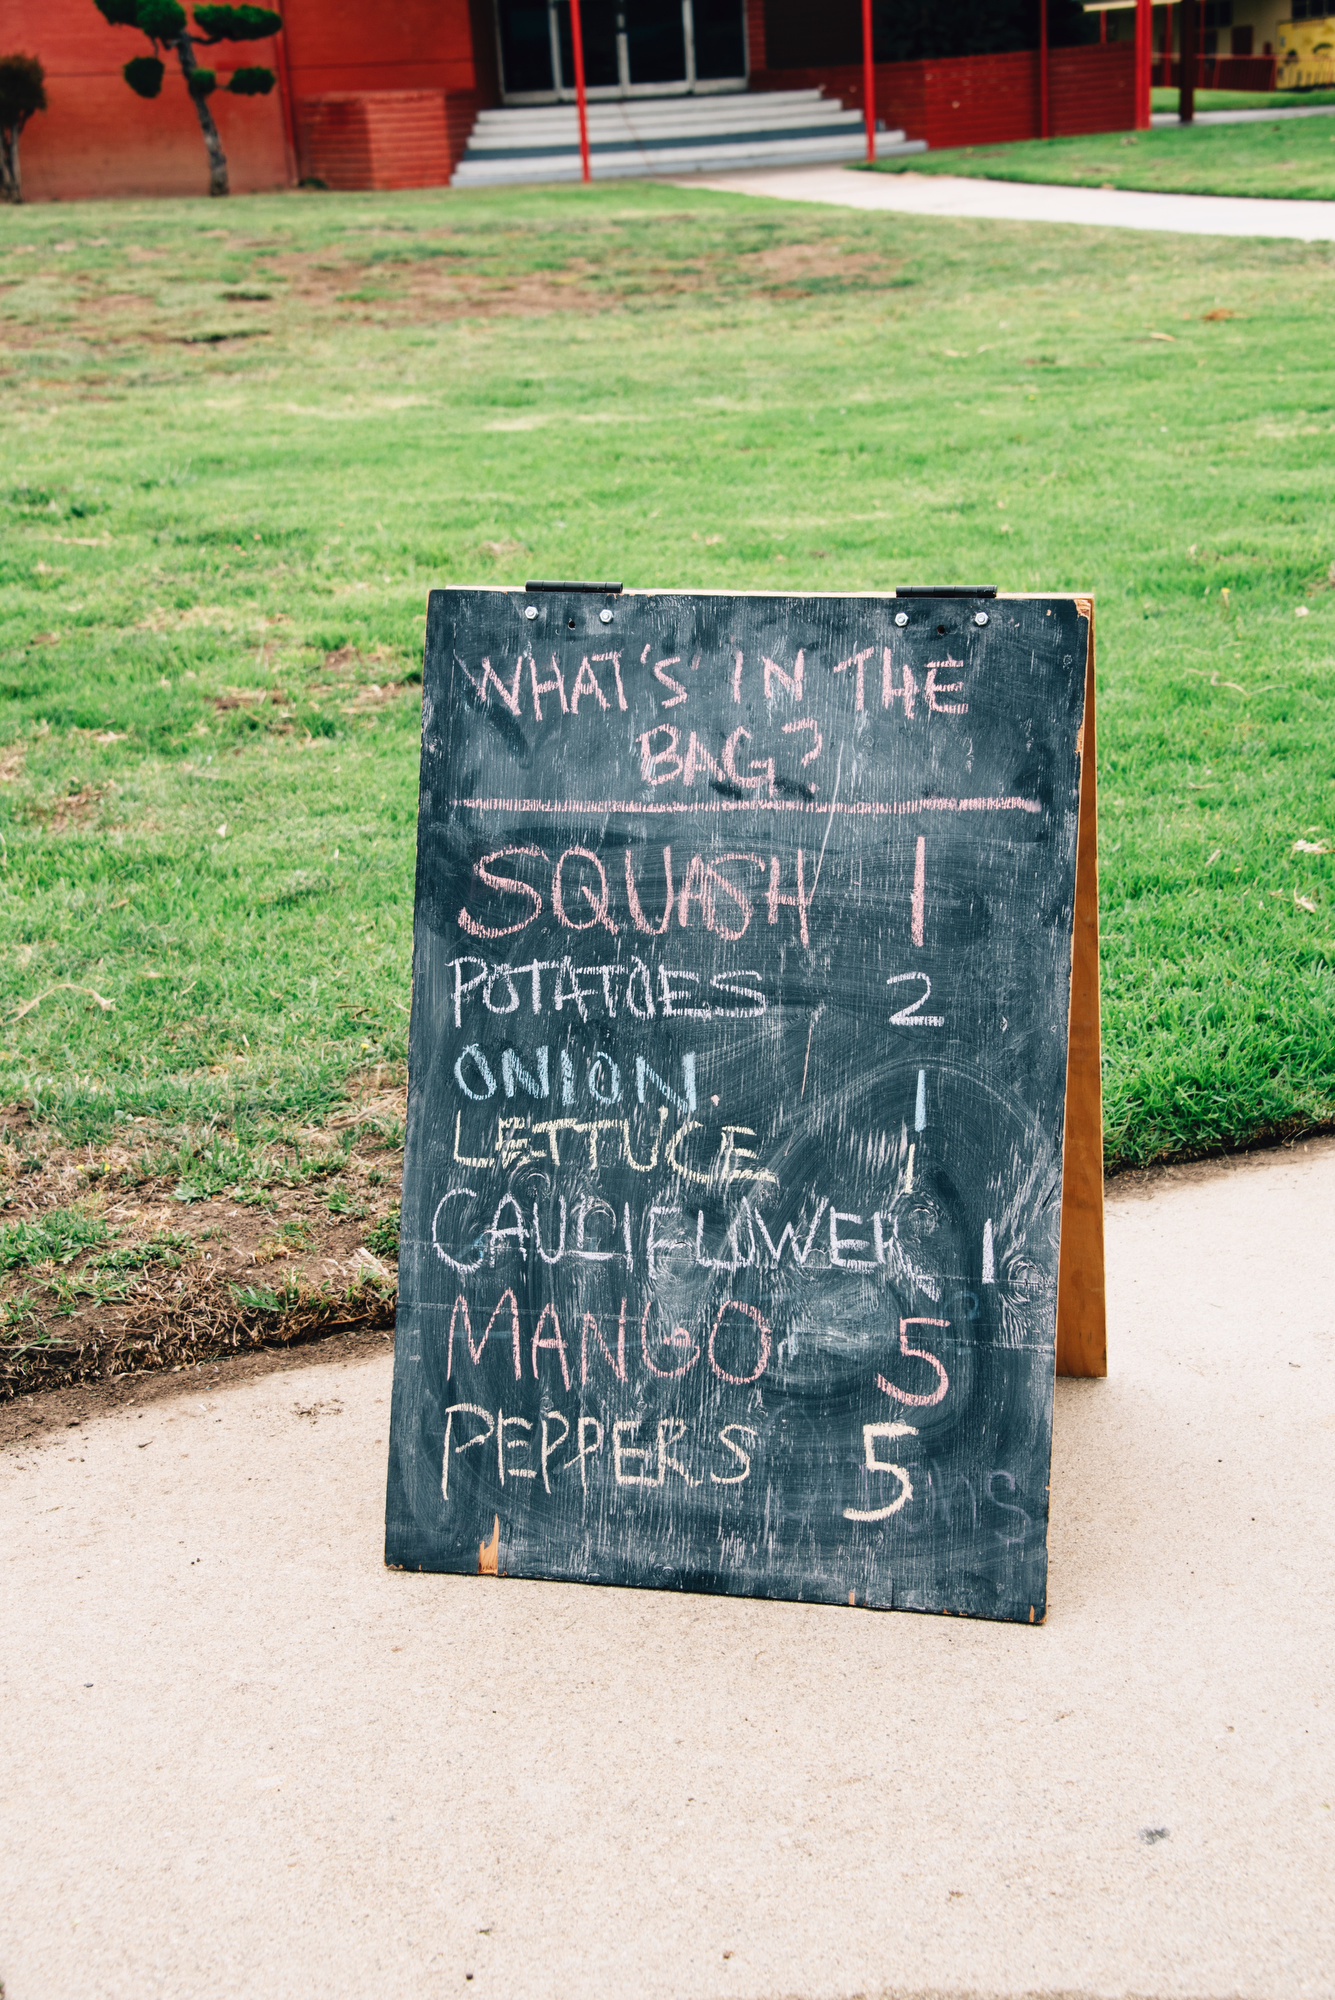 WHAT'S IN THE
BAG?
SQUASH 1
POTATOES 2
ONION 1
LETTUCE 1
CAULIFLOWER 1
MANGO 5
PEPPERS 5